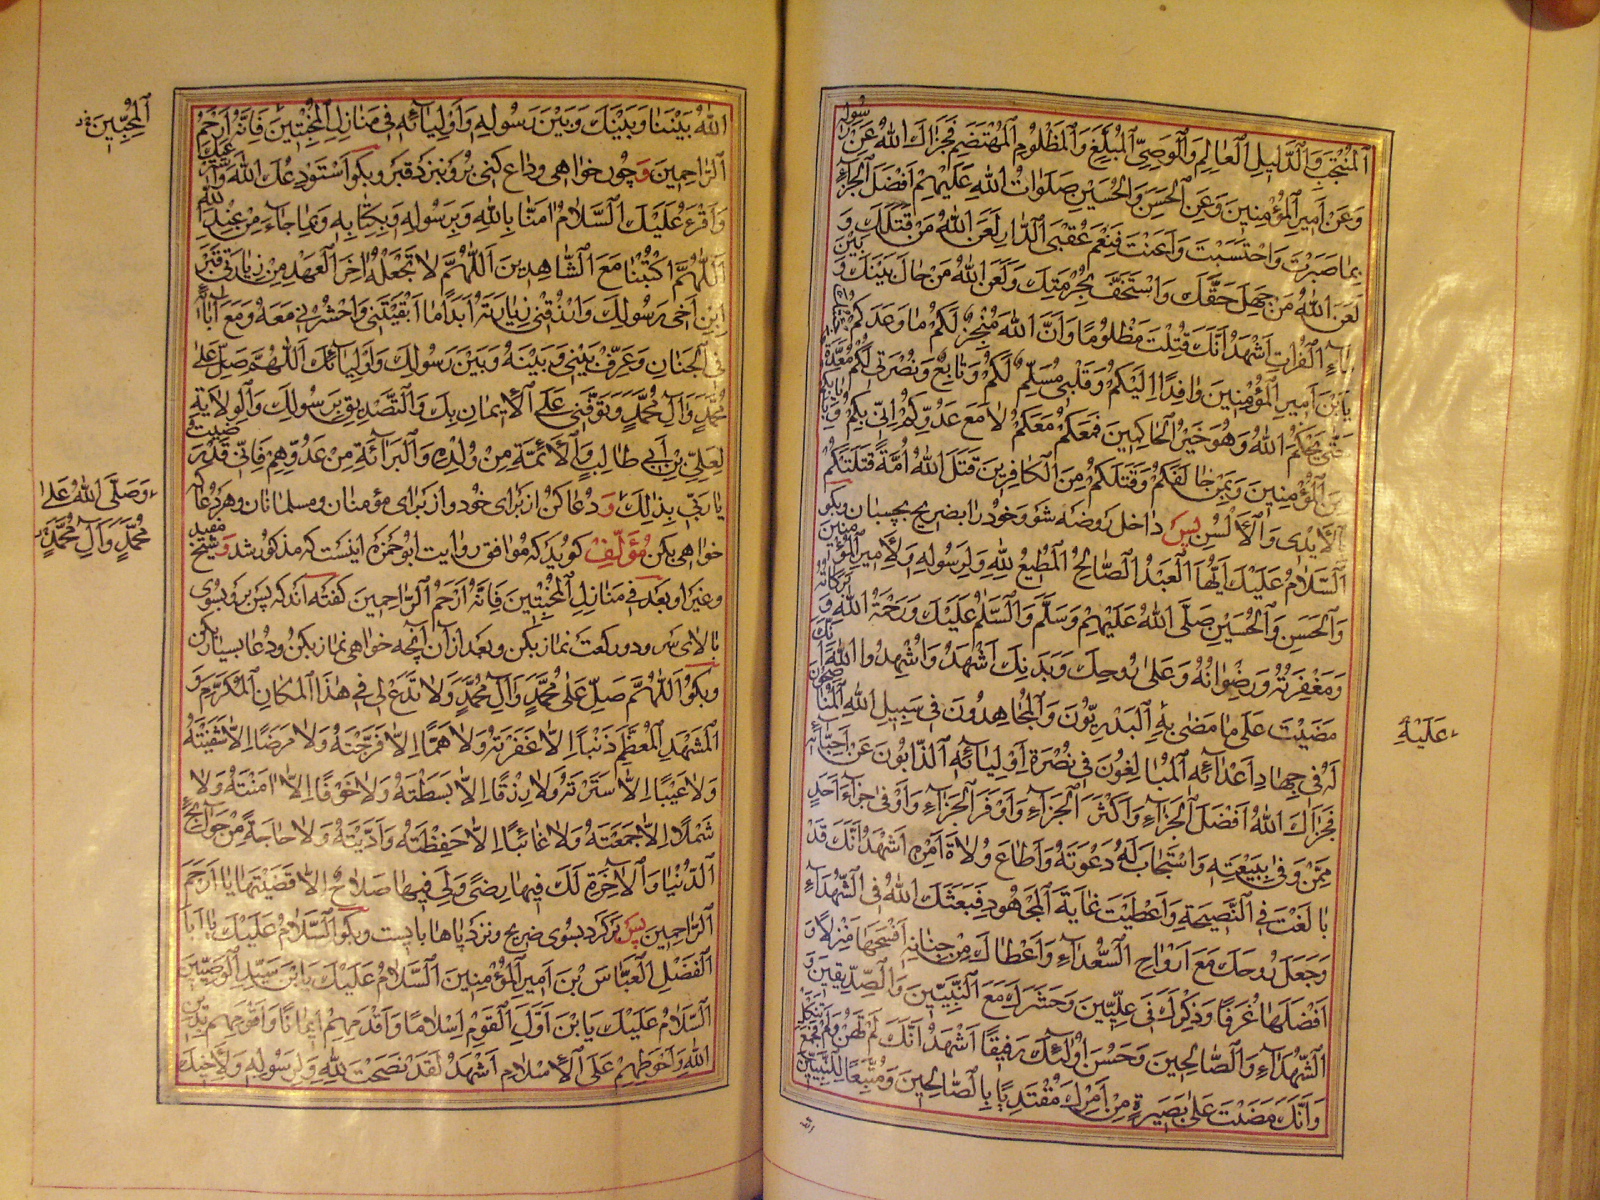 المنتجب والدليل العالم والوصي المبلغ والمظلوم المهتضم فجزاك الله عن رسوله
وعن امير المؤمنين وعن الحسن والحسين صلوات الله عليهم افضل الجزاء
بما صبرت واحتسبت واعنت فنعم عقبى الدار لعن الله من قتلك و
لعن الله من جهل حقك واستخف بحرمتك ولعن الله من حال بينك وبين
ماء الفرات اشهد انك قتلت مظلوما وان الله منجز لكم ما وعدكم
يابن امير المؤمنين وافدا اليكم وقلبي مسلم لكم وتابع ونصرتي لكم معدة
حتى يحكم الله وهو خير الحاكمين فمعكم معكم لا مع عدوكم اني بكم
من المؤمنين وبمن خالفكم وقتلكم من الكافرين قتل الله امة قتلتكم
بالايدى والالسن پس داخل روضه شو وخود را بضريح بچسبان وبكو
السلام عليك ايها العبد الصالح المطيع لله ولرسوله ولامير المؤمنين
والحسن والحسين صلى الله عليهم وسلم والسلم عليك ورحمة الله وبركاته
ومغفرته ورضوانه وعلى روحك وبدنك اشهد واشهدوا الله انك
مضيت على ما مضى به البدريون والمجاهدون في سبيل الله المناصحون
عليه
له في جهاد اعدائه المبالغون في نصرة اوليائه الذابون عن احبائه
فجزاك الله افضل الجزاء واكثر الجزاء واوفر الجزاء واوفى جزاء احد
ممن وفى ببيعته واستجاب له دعوته واطاع ولاة امره اشهد انك قد
بالغت في النصيحة واعطيت غاية المجهود فبعثك الله في الشهداء
وجعل روحك مع ارواح السعداء واعطاك من جنانه افسحها منزلا و
افضلها غرفا وذكرك في عليين وحشرك مع النبيين والصديقين و
الشهداء والصالحين وحسن اولئك رفيقا اشهد انك لم تهن ولم تنكل
وانك مضيت على بصيرة من امرك مقتديا بالصالحين ومتبعا للنبيين فجمع
الله بيننا وبينك وبين رسوله واوليائه في منازل المخبتين فانه ارحم
المحبين
الراحمين و چون خواهي وداع كنى برو نزد قبر وبكو استودعك الله واسترعيك
واقرء عليك السلام امنا بالله وبرسوله وبكتابه وبما جاء من عند الله
اللهم اكتبنا مع الشاهدين اللهم لا تجعله اخر العهد من زيارتي قبر
ابن اخي رسولك وارزقني زيارته ابدا ما ابقيتني واحشرني معه ومع ابائه
في الجنان وعرف بيني وبينه وبين رسولك واوليائك اللهم صل على
محمد وال محمد وتوفني على الايمان بك والتصديق برسولك والولاية
لعلي بن أبي طالب والائمة من ولده والبرائة من عدوهم فاني قد رضيت
وصلى الله على
محمد وال محمد
يا ربي بذلك و دعا كن از براى خود واز براى مؤمنان ومسلمانان وهر دعا كه
خواهي بكن مؤلف كويد كه موافق روايت ابوحمزه اينست كه مذكور شد و شيخ مفيد
وغير او بعد في منازل المخبتين فانه ارحم الراحمين كفته اند كه پس برو بسوى
بالاى سر ودو ركعت نماز بكن وبعد از آن آنچه خواهي نماز بكن ودعا بسيار بكن
وبكو اللهم صل على محمد وال محمد ولا تدع لي في هذا المكان المكرم و
المشهد المعظم ذنبا الا غفرته ولا هما الا فرجته ولا مرضا الا شفيته
ولا عيبا الا سترته ولا رزقا الا بسطته ولا خوفا الا امنته ولا
شملا الا جمعته ولا غائبا الا حفظته وادنيته ولا حاجة من حوائج
الدنيا والاخرة لك فيها رضى ولي فيها صلاح الا قضيتها يا ارحم
الراحمين پس بركرد بسوى ضريح ونزد پاها بايست وبكو السلام عليك يا ابا
الفضل العباس بن امير المؤمنين السلام عليك يابن سيد الوصيين
السلام عليك يابن اول القوم اسلاما واقدمهم ايمانا واقومهم بدين
الله واحوطهم على الاسلام اشهد لقد نصحت لله ولرسوله ولاخيك